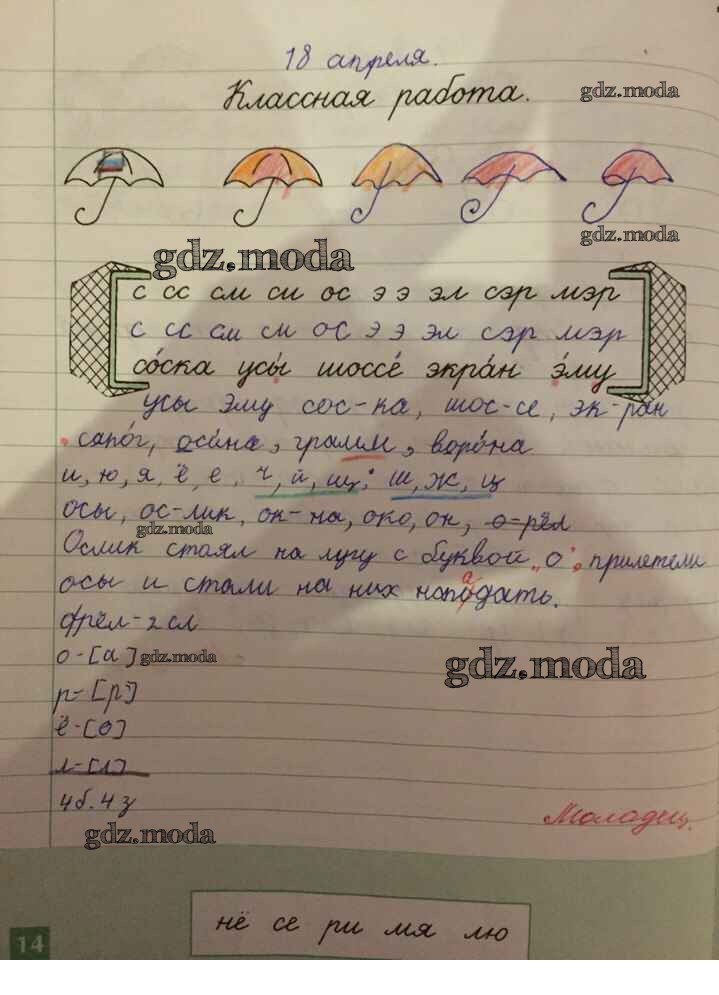 18 апреля.
Классная работа.
gdz.moda
gdz.moda
gdz.moda
с сс см си ос э э эл сэр мэр
с сс см см ос э э эл сэр мэр
со́ска усы́ шоссе́ экра́н э́му
усы эму сос-ка, шос-се, эк-ран
сапо́г, оси́на, грамм, воро́на
и, ю, я, ё, е, ч, й, щ; ш, ж, ц
осы, ос-лик, ок-на, око, он, о-рёл
gdz.moda
Ослик стоял на лугу с буквой „о", прилетели
осы и стали на них нападать.
орёл-2 сл
о-[а]
gdz.moda
gdz.moda
р-[р']
ё-[о]
л-[л]
4б. 4з
Молодец.
gdz.moda
нё се ри мя лю
14